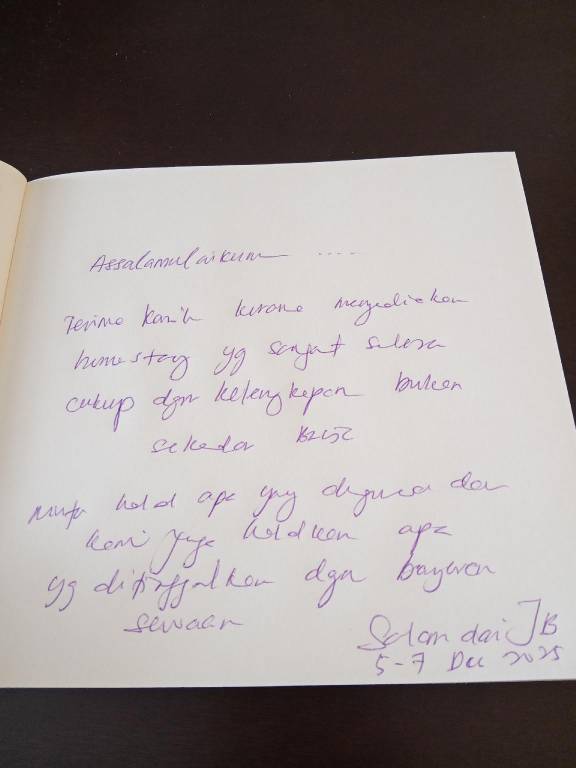 Assalamulaikum ....
Terima kasih kerana menyediakan
homestay yg sangat selesa
cukup dgn kelengkapan bukan
sekadar
minta halal apa yang diguna dan
kami juga halalkan apa
yg ditinggalkan dgn bayaran
sewaan
Salam dari JB
5-7 Dec 2025